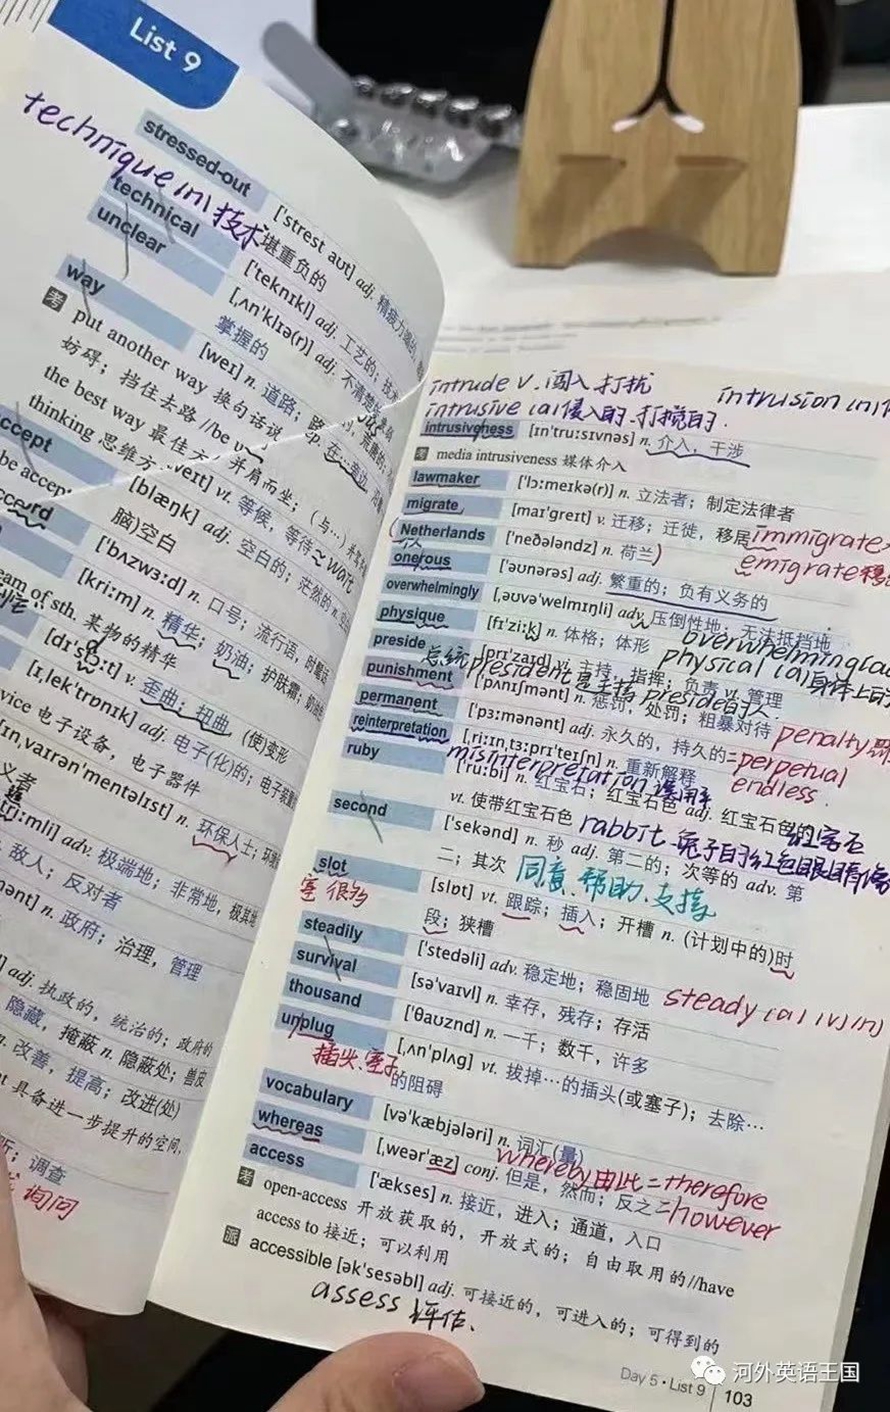 List 9
technique [n] 技术
stressed-out
['strest aʊt] adj. 精疲力竭的
堪重负的
technical
['teknɪkl] adj. 工艺的；技术
unclear
[ˌʌn'klɪə(r)] adj. 不清楚
掌握的
way
[weɪ] n. 道路；路
考 put another way 换句话说 //be
妨碍；挡住去路
the best way 最佳方 并肩而坐；（与…）
thinking 思维方
ccept
[weɪt] vt. 等候，等待 ~wait
be accept
[blæŋk] adj. 空白的；茫然的 n.
脑)空白
['bʌzwɜːd] n. 口号；流行语，时髦
[kriːm] n. 精华；奶油；护肤霜；
eam of sth. 某物的精华
v. 歪曲；扭曲 (使)变形
[ɪˌlek'trɒnɪk] adj. 电子(化)的；电子装置
vice 电子设备，电子器件
[ɪnˌvaɪrən'mentəlɪst] n. 环保人士；环境
义者
adv. 极端地；非常地，极其地
敌人；反对者
n. 政府；治理，管理
adj. 执政的，统治的；政府的
隐藏，掩蔽 n. 隐蔽处；兽皮
n. 改善，提高；改进(处)
具备进一步提升的空间
调查
询问
intrude v. 闯入 打扰 intrusion [n]
intrusive [a] 侵入的. 打搅的.
intrusiveness [ɪn'truːsɪvnəs] n. 介入，干涉
考 media intrusiveness 媒体介入
lawmaker ['lɔːmeɪkə(r)] n. 立法者；制定法律者
migrate [maɪ'greɪt] v. 迁移；迁徙，移居 immigrate
Netherlands ['neðələndz] n. 荷兰 emigrate 移
onerous ['əʊnərəs] adj. 繁重的；负有义务的
overwhelmingly [ˌəʊvə'welmɪŋli] adv. 压倒性地；无法抵挡地
overwhelming
physique [fɪ'ziːk] n. 体格；体形 physical [a] 身体上的
preside [prɪ'zaɪd] vi. 主持，指挥；负责 vt. 管理
总统 president 是主持 preside 的人
punishment ['pʌnɪʃmənt] n. 惩罚，处罚；粗暴对待 penalty
permanent ['pɜːmənənt] adj. 永久的，持久的 = perpetual
endless.
reinterpretation [ˌriːɪnˌtɜːprɪ'teɪʃn] n. 重新解释
misinterpretation
ruby ['ruːbi] n. 红宝石；红宝石色 adj. 红宝石色的
vt. 使带红宝石色 rabbit. 兔子的红色眼睛像
红宝石
second ['sekənd] n. 秒 adj. 第二的；次等的 adv. 第
二；其次 同意、帮助、支持
slot [slɒt] vt. 跟踪；插入；开槽 n. (计划中的)时
段；狭槽
steadily ['stedəli] adv. 稳定地；稳固地 steady [a] [v] [n]
survival [sə'vaɪvl] n. 幸存，残存；存活
thousand ['θaʊznd] n. 一千；数千，许多
unplug [ˌʌn'plʌg] vt. 拔掉…的插头(或塞子)；去除…
插头、塞子 的阻碍
vocabulary [və'kæbjələri] n. 词汇(量)
whereby 由此 = therefore
whereas [ˌweər'æz] conj. 但是，然而；反之 = however
access ['ækses] n. 接近，进入；通道，入口
考 open-access 开放获取的，开放式的；自由取用的//have
access to 接近；可以利用
派 accessible [ək'sesəbl] adj. 可接近的，可进入的；可得到的
assess 评估.
Day 5 · List 9 | 103
河外英语王国